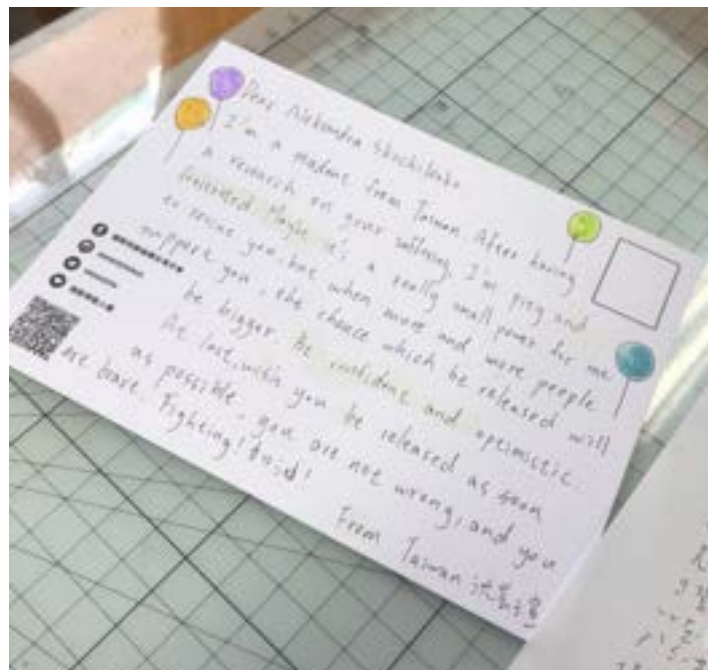 Dear Aleksandra Skochilenko
I'm a student from Taiwan. After having
a research on your suffering, I'm pity and
frustrated. Maybe it's a really small power for me
to rescue you, but when more and more people
support you, the chance which be released will
be bigger. Be confident and optimistic.
At last, wish you be released as soon
as possible, you are not wrong, and you
are brave! Fighting! 加油!
From Taiwan